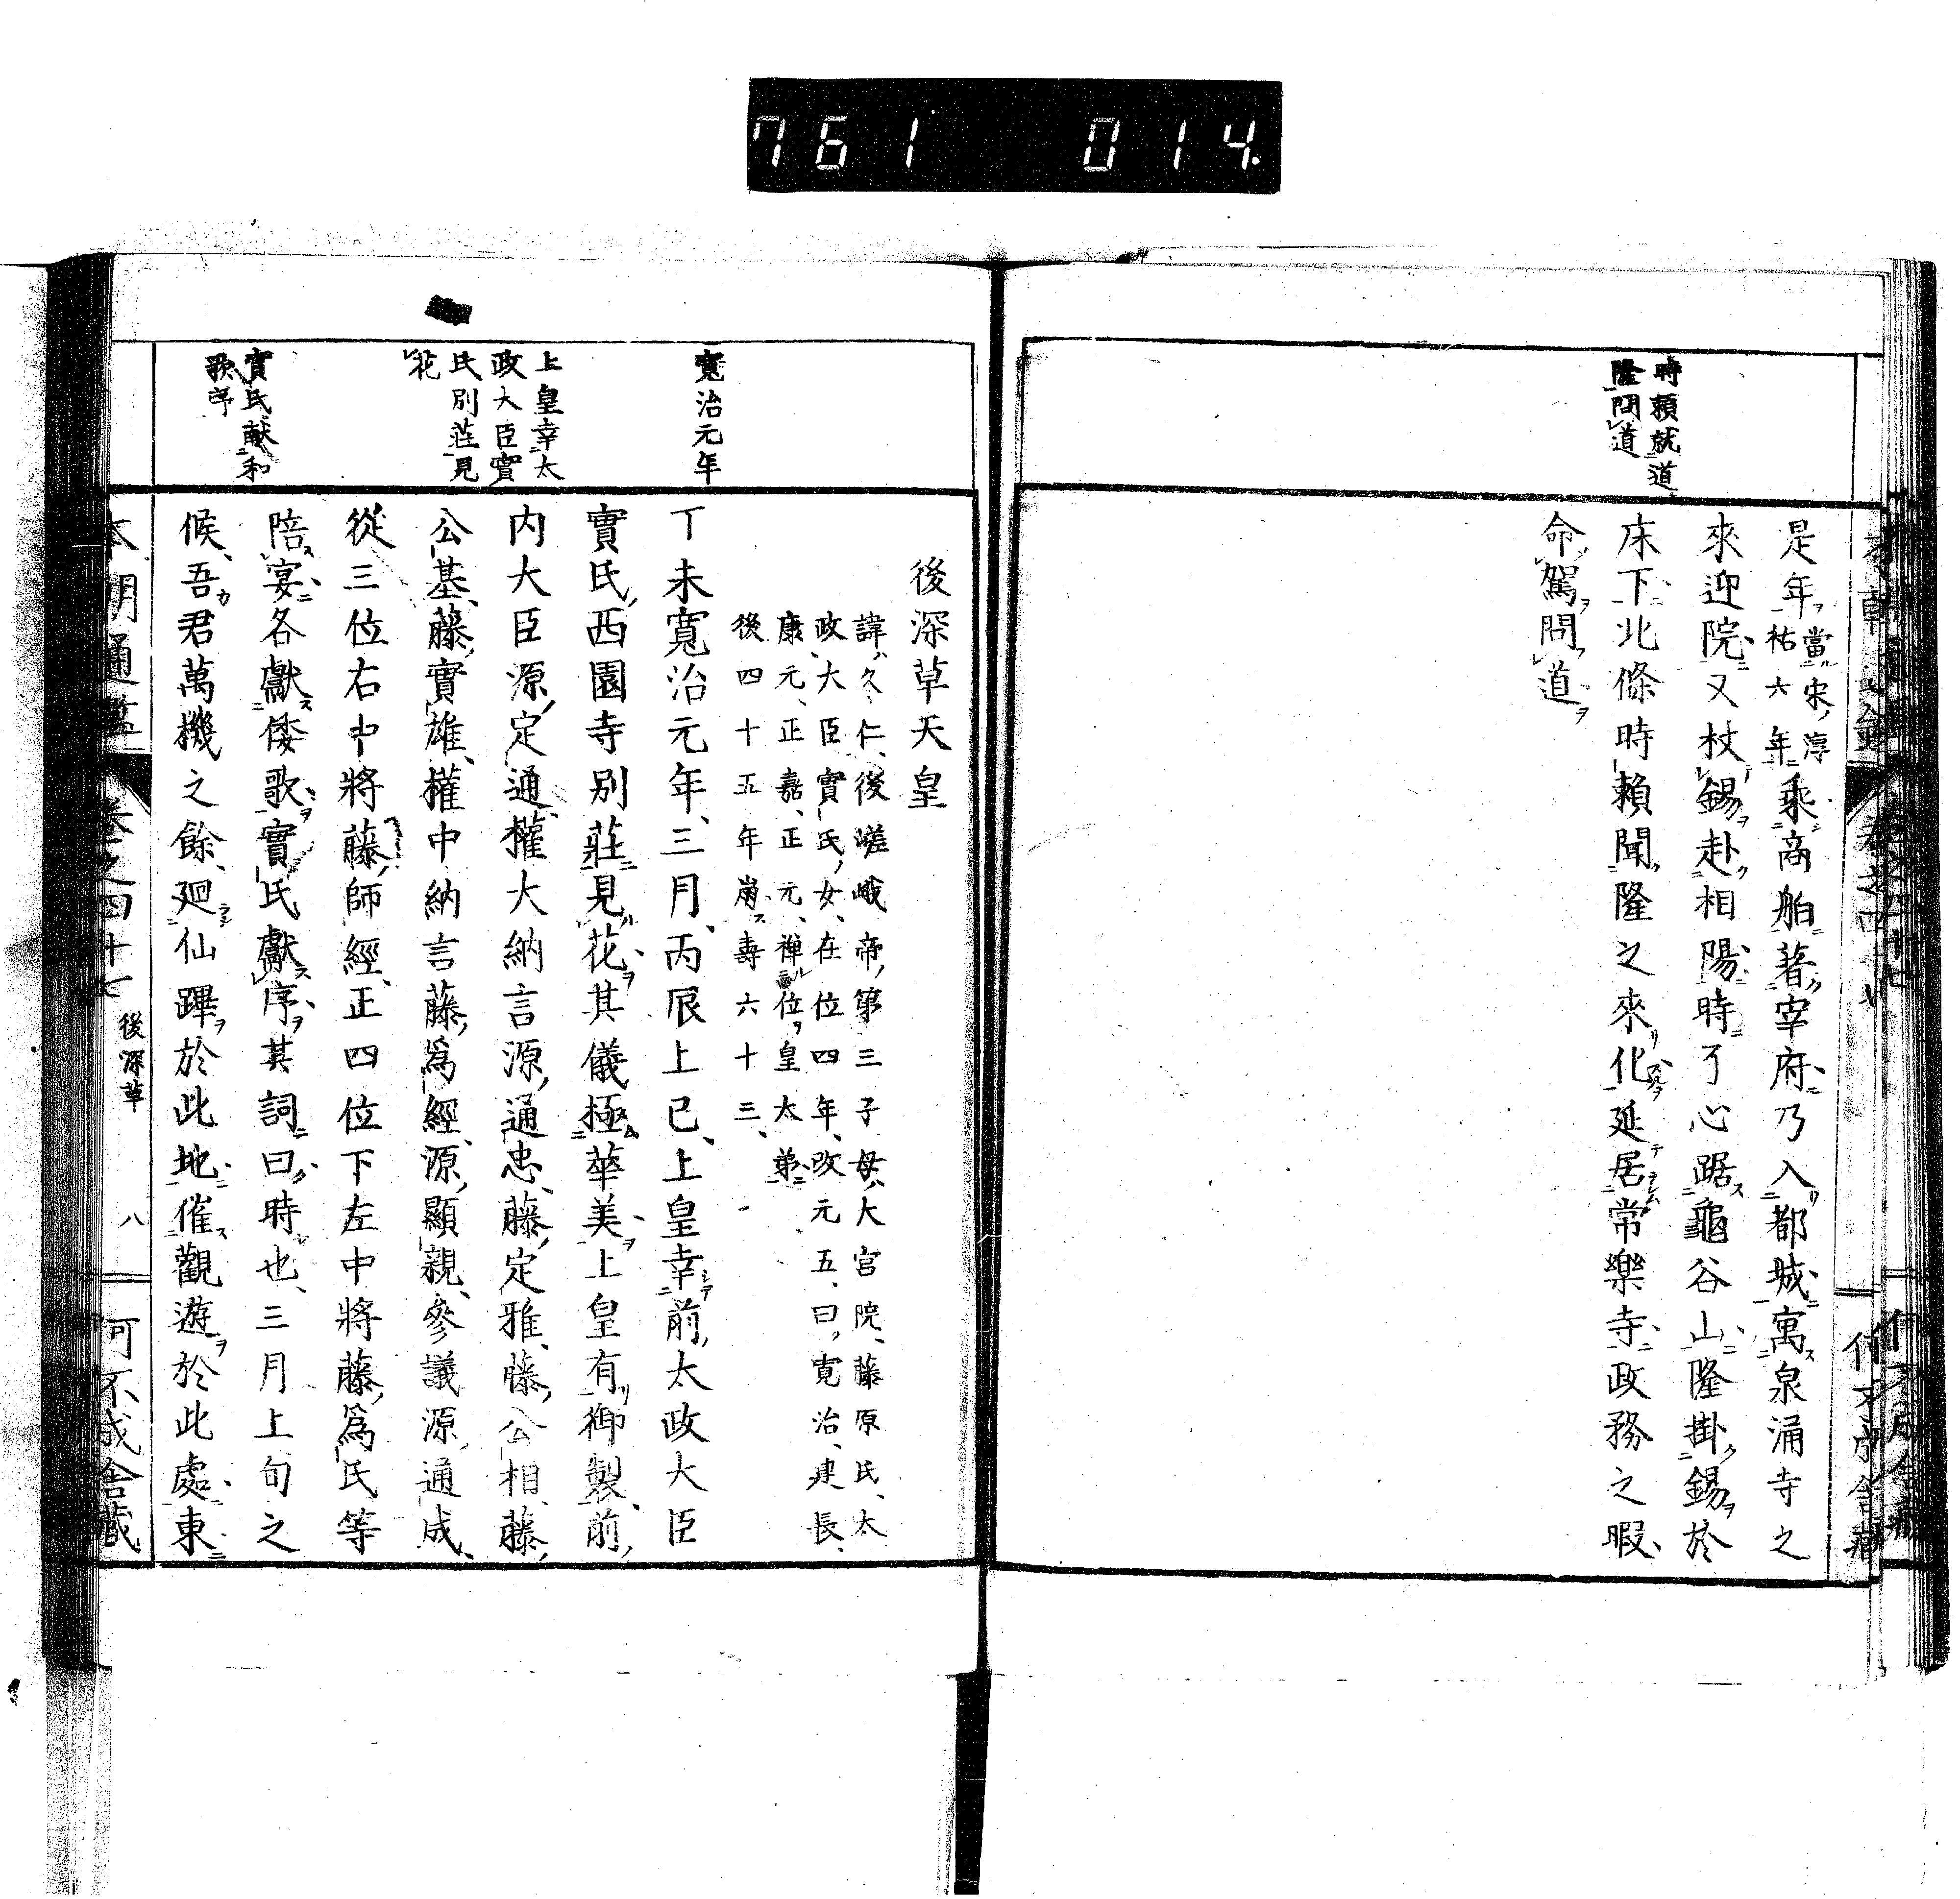 761 014
時賴就道
隆問道
是年當宋淳祐六年乘商舶著宰府乃入都城寓泉涌寺之
來迎院又杖錫赴相陽時了心踞龜谷山隆掛錫於
床下北條時賴聞隆之來化延居常樂寺政務之暇
命駕問道
寬治元年
上皇幸太
政大臣實
氏別莊見
花
實氏獻和
歌序
後深草天皇
諱久仁後嵯峨帝第三子母大宮院藤原氏太
政大臣實氏女在位四年改元五曰寬治建長
康元正嘉正元禪位皇太弟
後四十五年崩壽六十三
丁未寬治元年三月丙辰上巳上皇幸前太政大臣
實氏西園寺別莊見花其儀極華美上皇有御製前
内大臣源定通權大納言源通忠藤定雅藤公相藤
公基藤實雄權中納言藤爲經源顯親參議源通成
從三位右中將藤師經正四位下左中將藤爲氏等
陪宴各獻倭歌實氏獻序其詞曰時也三月上旬之
候吾君萬機之餘廻仙蹕於此地催觀遊於此處東
本朝通鑑 卷之四十七 後深草 八 何不成舍藏